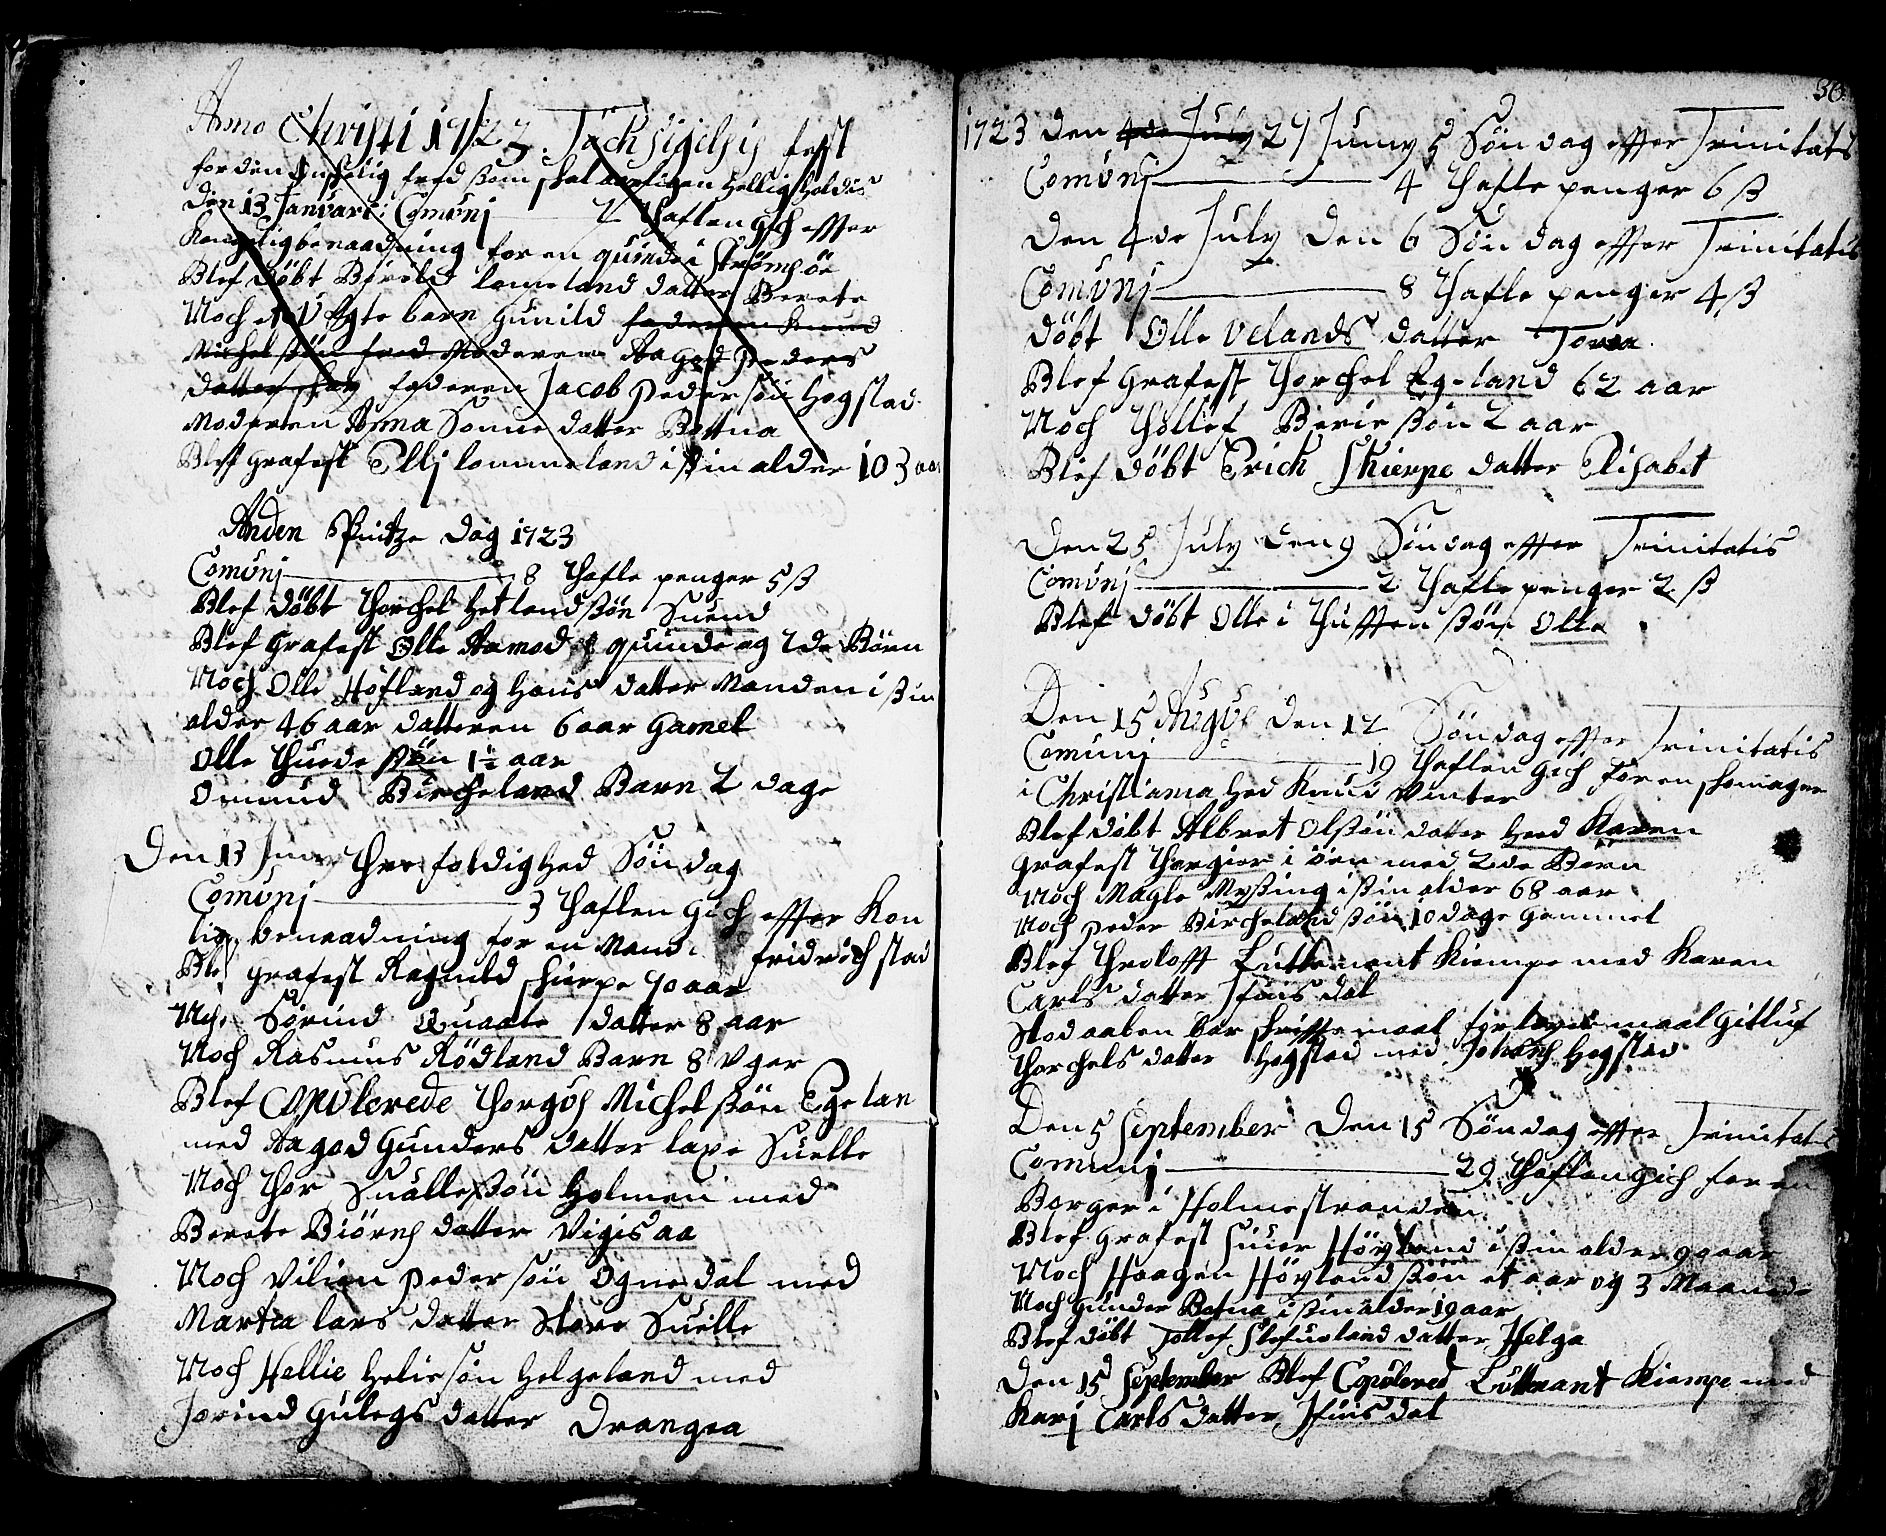 Anno Christi 1722 Tachsigelsis fest
for den ønskelig fred som skal aarligen hellig holdis
den 13 Januari: Comunj — 2 Thaflen gich effter
Kongelig benaadning for en quinde i Strømsøe
Blef døbt Børild lomeland datter Berete
Noch et U Egte barn Gunild faderen Knud
Michelssøn fred Moderen Aagod peders
datter faderen Jacob pedersøn Hogstad
Moderen Anna Sonne datter Bottna
Blef grafest Ellj lommeland i ssin alder 103 aar
Anden Pintze dag 1723
Comunj — 8 Thafle penger 5 ß
Blef døbt Thorchel Hetland ssøn Suend
Blef Grafest Olle Aamod quinde og 2de Børn
Noch Olle Høfland og hans datter Manden i ssin
alder 46 aar datteren 6 aar Gamel
Olle Tuede ssøn 1½ aar
Omund Bircheland Barn 2 dage
Den 13 Juny Thre foldighed Søndag
Comunj — 3 Thaflen Gich effter Kon
lig benaadning for en Mand i fridrichstad
Blef grafest Ragnild skierpe 90 aar
Noch Sørind Quaale datter 8 aar
Noch Rasmus Rødland Barn 8 Uger
Blef Copulerede Thorgus Michelssøn Egelan
med Aagod Gunders datter laxe Suelle
Noch Thor Snallessøn Holmen med
Berete Biørns datter Vigisaa
Noch Vilien pedersøn Ognedal med
Marta lars datter Store Suelle
Noch Hellie Heliesøn Helgeland med
Jorind Gulegs datter Drangea
36
1723 den 4de July 27 Juny 5 Søndag effter Trinitatis
Comunj — 4 Thafle penger 6 ß
Den 4de July den 6 Søndag effter Trinitatis
Comunj — 8 Thafle penger 4 ß
døbt Olle Velands datter Torea
Blef Grafest Thorchel Eg-land 62 aar
Noch Thollef Berie ssøn 2 aar
Blef døbt Erich Skierpe datter Elisabet
Den 25 July den 9 Søndag effter Trinitatis
Comunj — 2 Thafle penger 2 ß
Blef døbt Olle i Thufften ssøn Olle
Den 15 Augus den 12 Søndag effter Trinitatis
Comunj — 19 Thaflen Gich for en skomager
i Christiania Hed Knud Vinter
Blef døbt Albret Olssøn datter Hed Karen
Grafest Thorgier i øen med 2de Børn
Noch Magle Myssing i ssin alder 68 aar
Noch peder Bircheland ssøn 10 dage Gammel
Blef Throlofft Luttemant Kiempe med Karen
Carls datter Ifuisdal
Stod aaben bar skriffte maal for leyermaal Gitluf
Thorchels datter Hogstad med Johans Hogstad
Den 5 September Den 15 Søndag effter Trinitatis
Comunj — 29 Thaflen Gich for en
Borger i Holmestranden
Blef Grafest Siuer Høyland i ssin alder 99 aar
Noch Haagen Høyland ssøn et aar og 3 Maaneder
Noch Gunder Botna i ssin alder 19 aar
Blef døbt Tollef Slefueland datter Helga
Den 15 September Blef Copulered Luttenant Kiempe med
Karj Carls datter Ifuisdal